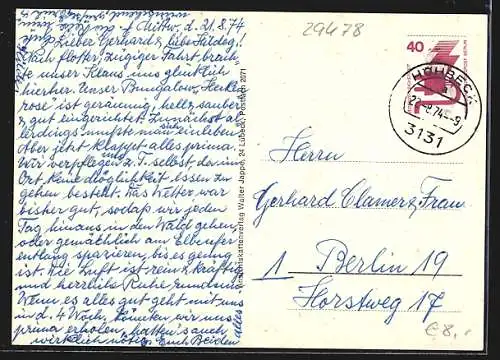 29478
Mittw. d. 21.8.74
Lieber Gerhard, liebe Hildeg.!
Nach flotter, zügiger Fahrt, brach-
te unser Klaus uns glücklich
hierher. Unser Bungalow "Heide-
rose" ist geräumig, hell, sauber
& gut eingerichtet. Zunächst al-
lerdings mußte man einleben.
Aber jetzt klappt alles prima.
Wir verpflegen z. T. selbst, da im
Ort keine Möglichkeit essen zu
gehen besteht. Das Wetter war
bisher gut, sodaß wir jeden
Tag hinaus in den Wald gehen,
oder gemütlich am Elbeufer
entlang spazieren, bis es genug
ist. Die Luft ist rein & kräftig
und herrliche Ruhe rundum.
Wenn es alles gut geht mit uns
in d. 4 Woch. könnten wir uns
prima erholen, hatten's auch
wirklich nötig. Euch Beiden
alles
Ansichtskartenverlag Walter Jappe, 24 Lübeck, Postfach 2071
40
DEUTSCHE BUNDESPOST BERLIN
HÖHBECK
-8.74-9
3131
Herrn
Gerhard Clamer & Frau
1 Berlin 19
Horstweg 17
€ 8,-